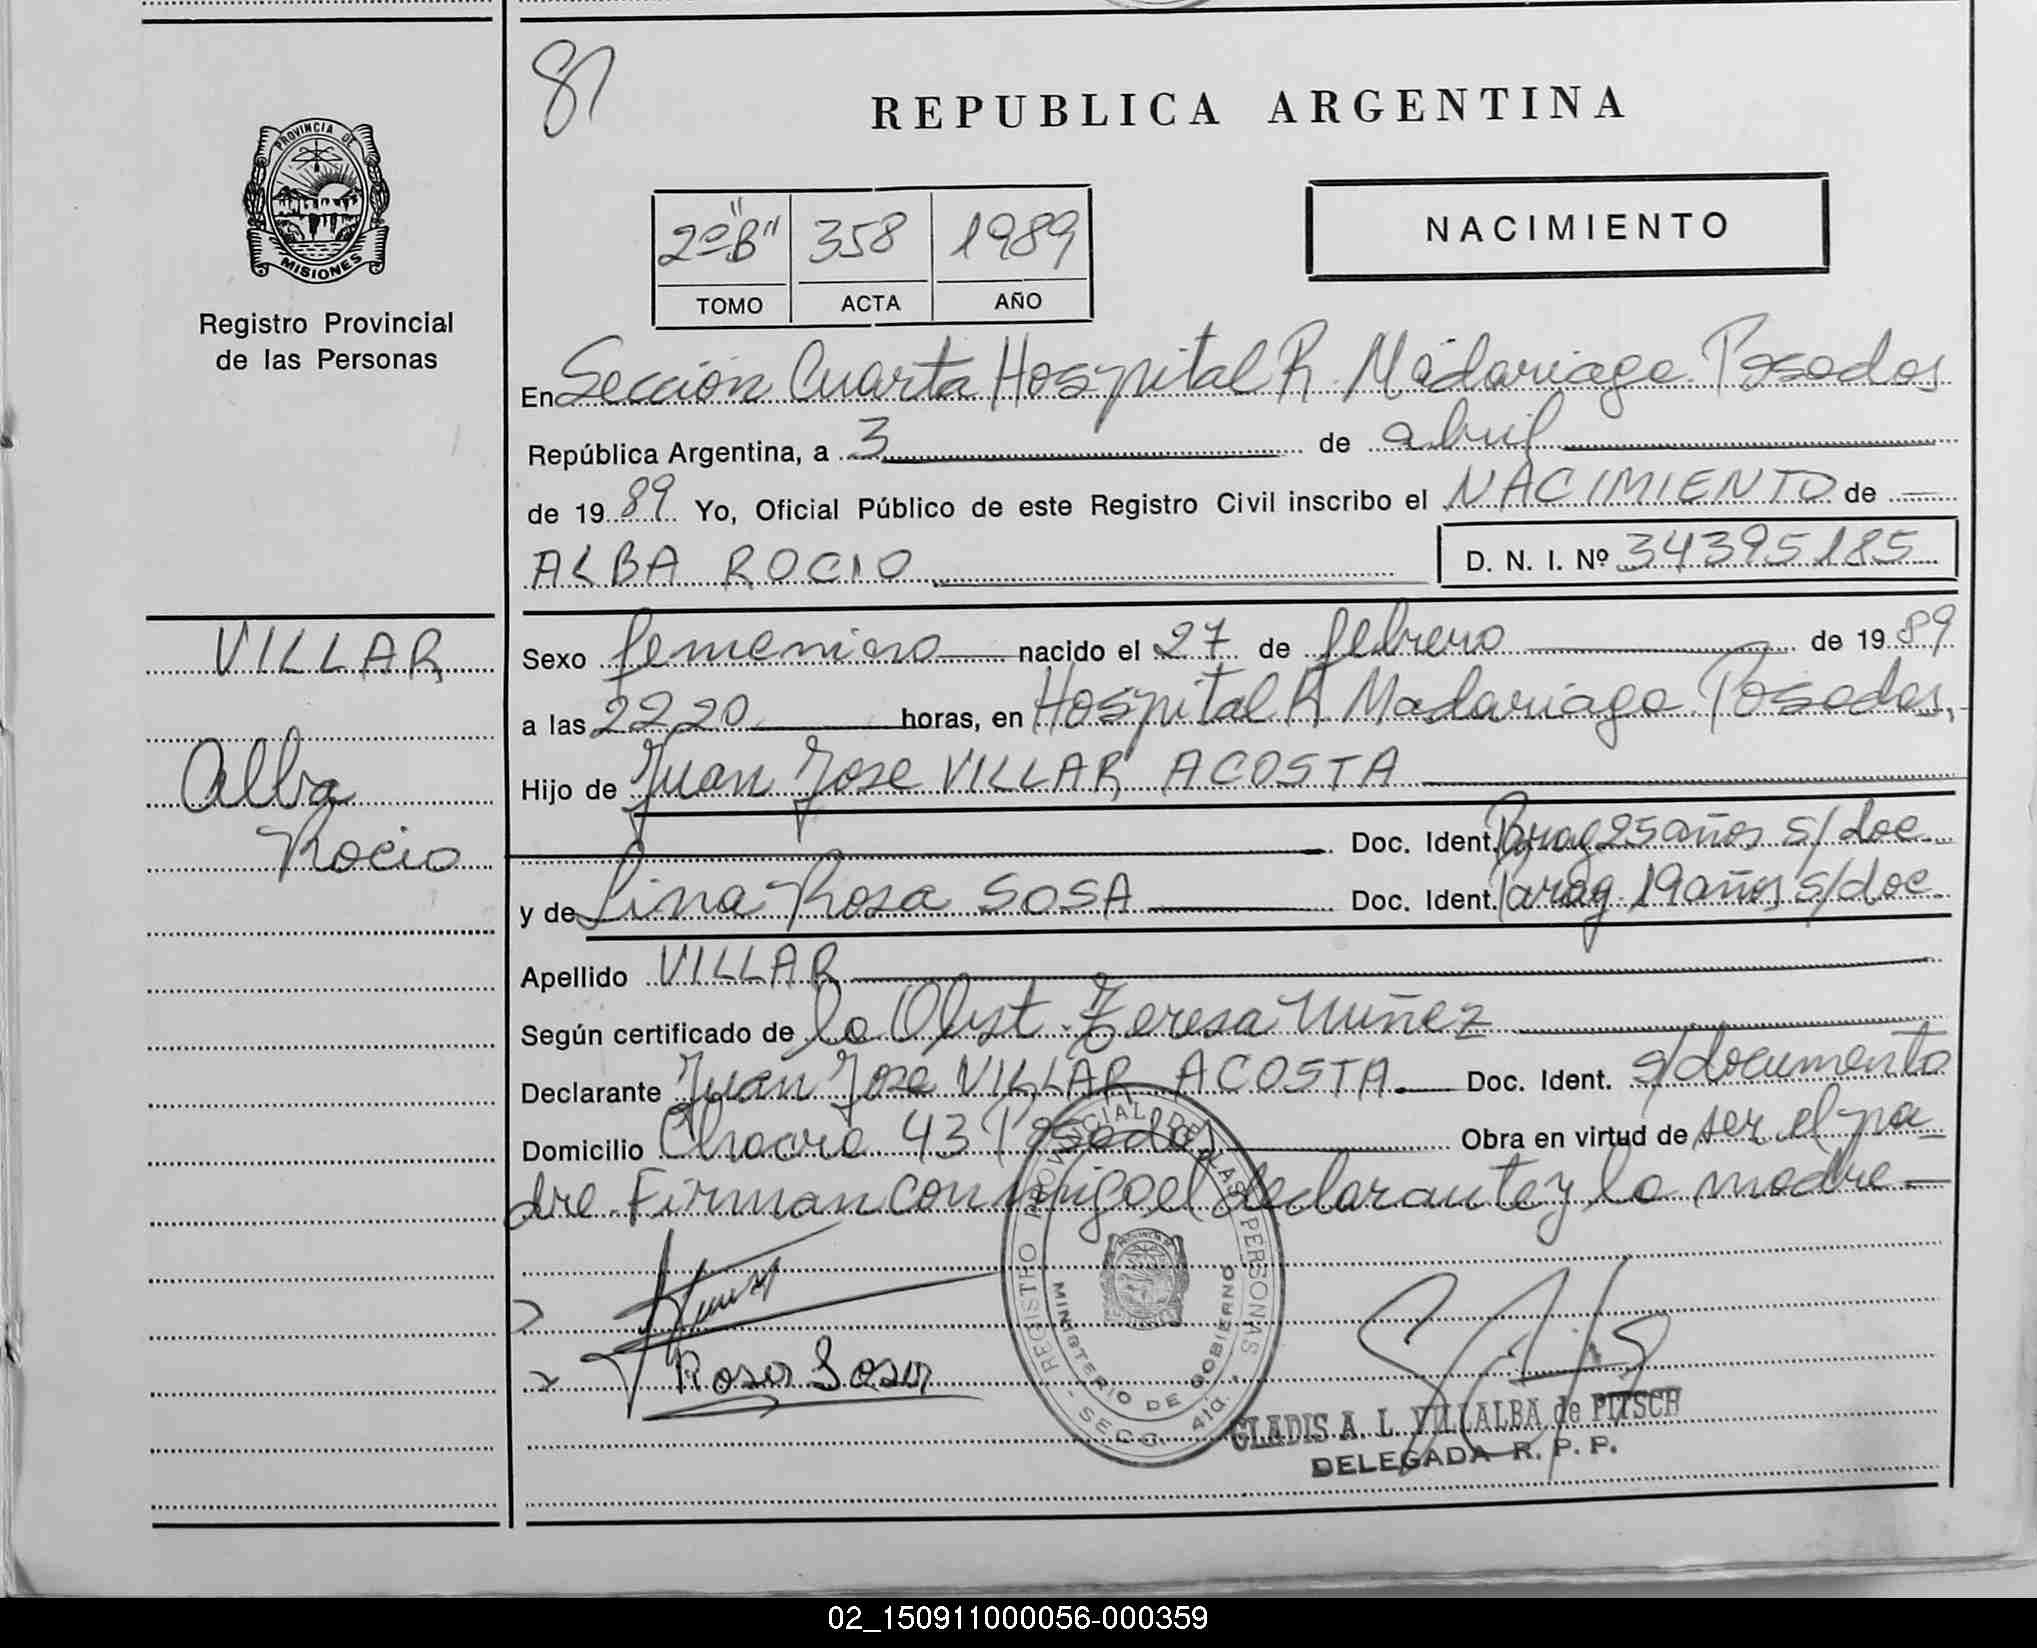 87
REPUBLICA ARGENTINA
PROVINCIA DE
MISIONES
Registro Provincial
de las Personas
2º "B" 358 1989
TOMO ACTA AÑO
NACIMIENTO
En Sección Cuarta Hospital R. Madariaga. Posadas
República Argentina, a 3 de abril
de 1989 Yo, Oficial Público de este Registro Civil inscribo el NACIMIENTO de
ALBA ROCIO D. N. I. Nº 34395185
VILLAR
Alba
Rocio
Sexo femenino nacido el 27 de febrero de 1989
a las 22 20 horas, en Hospital R Madariaga. Posadas,
Hijo de Juan Jose VILLAR ACOSTA
Doc. Ident. Parag 25 años s/doc
y de Lina Rosa SOSA Doc. Ident. Parag. 19 años s/doc
Apellido VILLAR
Según certificado de la Obst. Teresa Nuñez
Declarante Juan Jose VILLAR ACOSTA. Doc. Ident. s/documento
Domicilio Chacra 43 Posadas Obra en virtud de ser el pa-
dre. Firman conmigo el declarante y la madre
REGISTRO PROVINCIAL DE LAS PERSONAS
MINISTERIO DE GOBIERNO
- SECC. 4ta. -
Rosa Sosa
GLADIS A. L. VILLALBA de PITSCH
DELEGADA R. P. P.
02_150911000056-000359